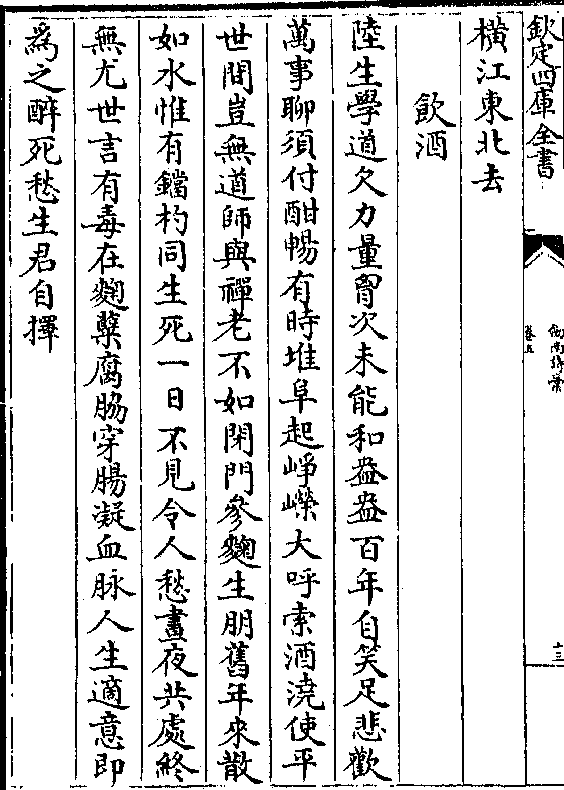 欽定四庫全書
劒南詩藁
卷五
十三
橫江東北去
飲酒
陸生學道欠力量胷次未能和盎盎百年自笑足悲歡
萬事聊須付酣暢有時堆阜起崢嶸大呼索酒澆使平
世間豈無道師與禪老不如閉門參麴生朋舊年來散
如水惟有鐺杓同生死一日不見令人愁晝夜共處終
無尤世言有毒在麴櫱腐脇穿腸凝血脉人生適意即
爲之醉死愁生君自擇